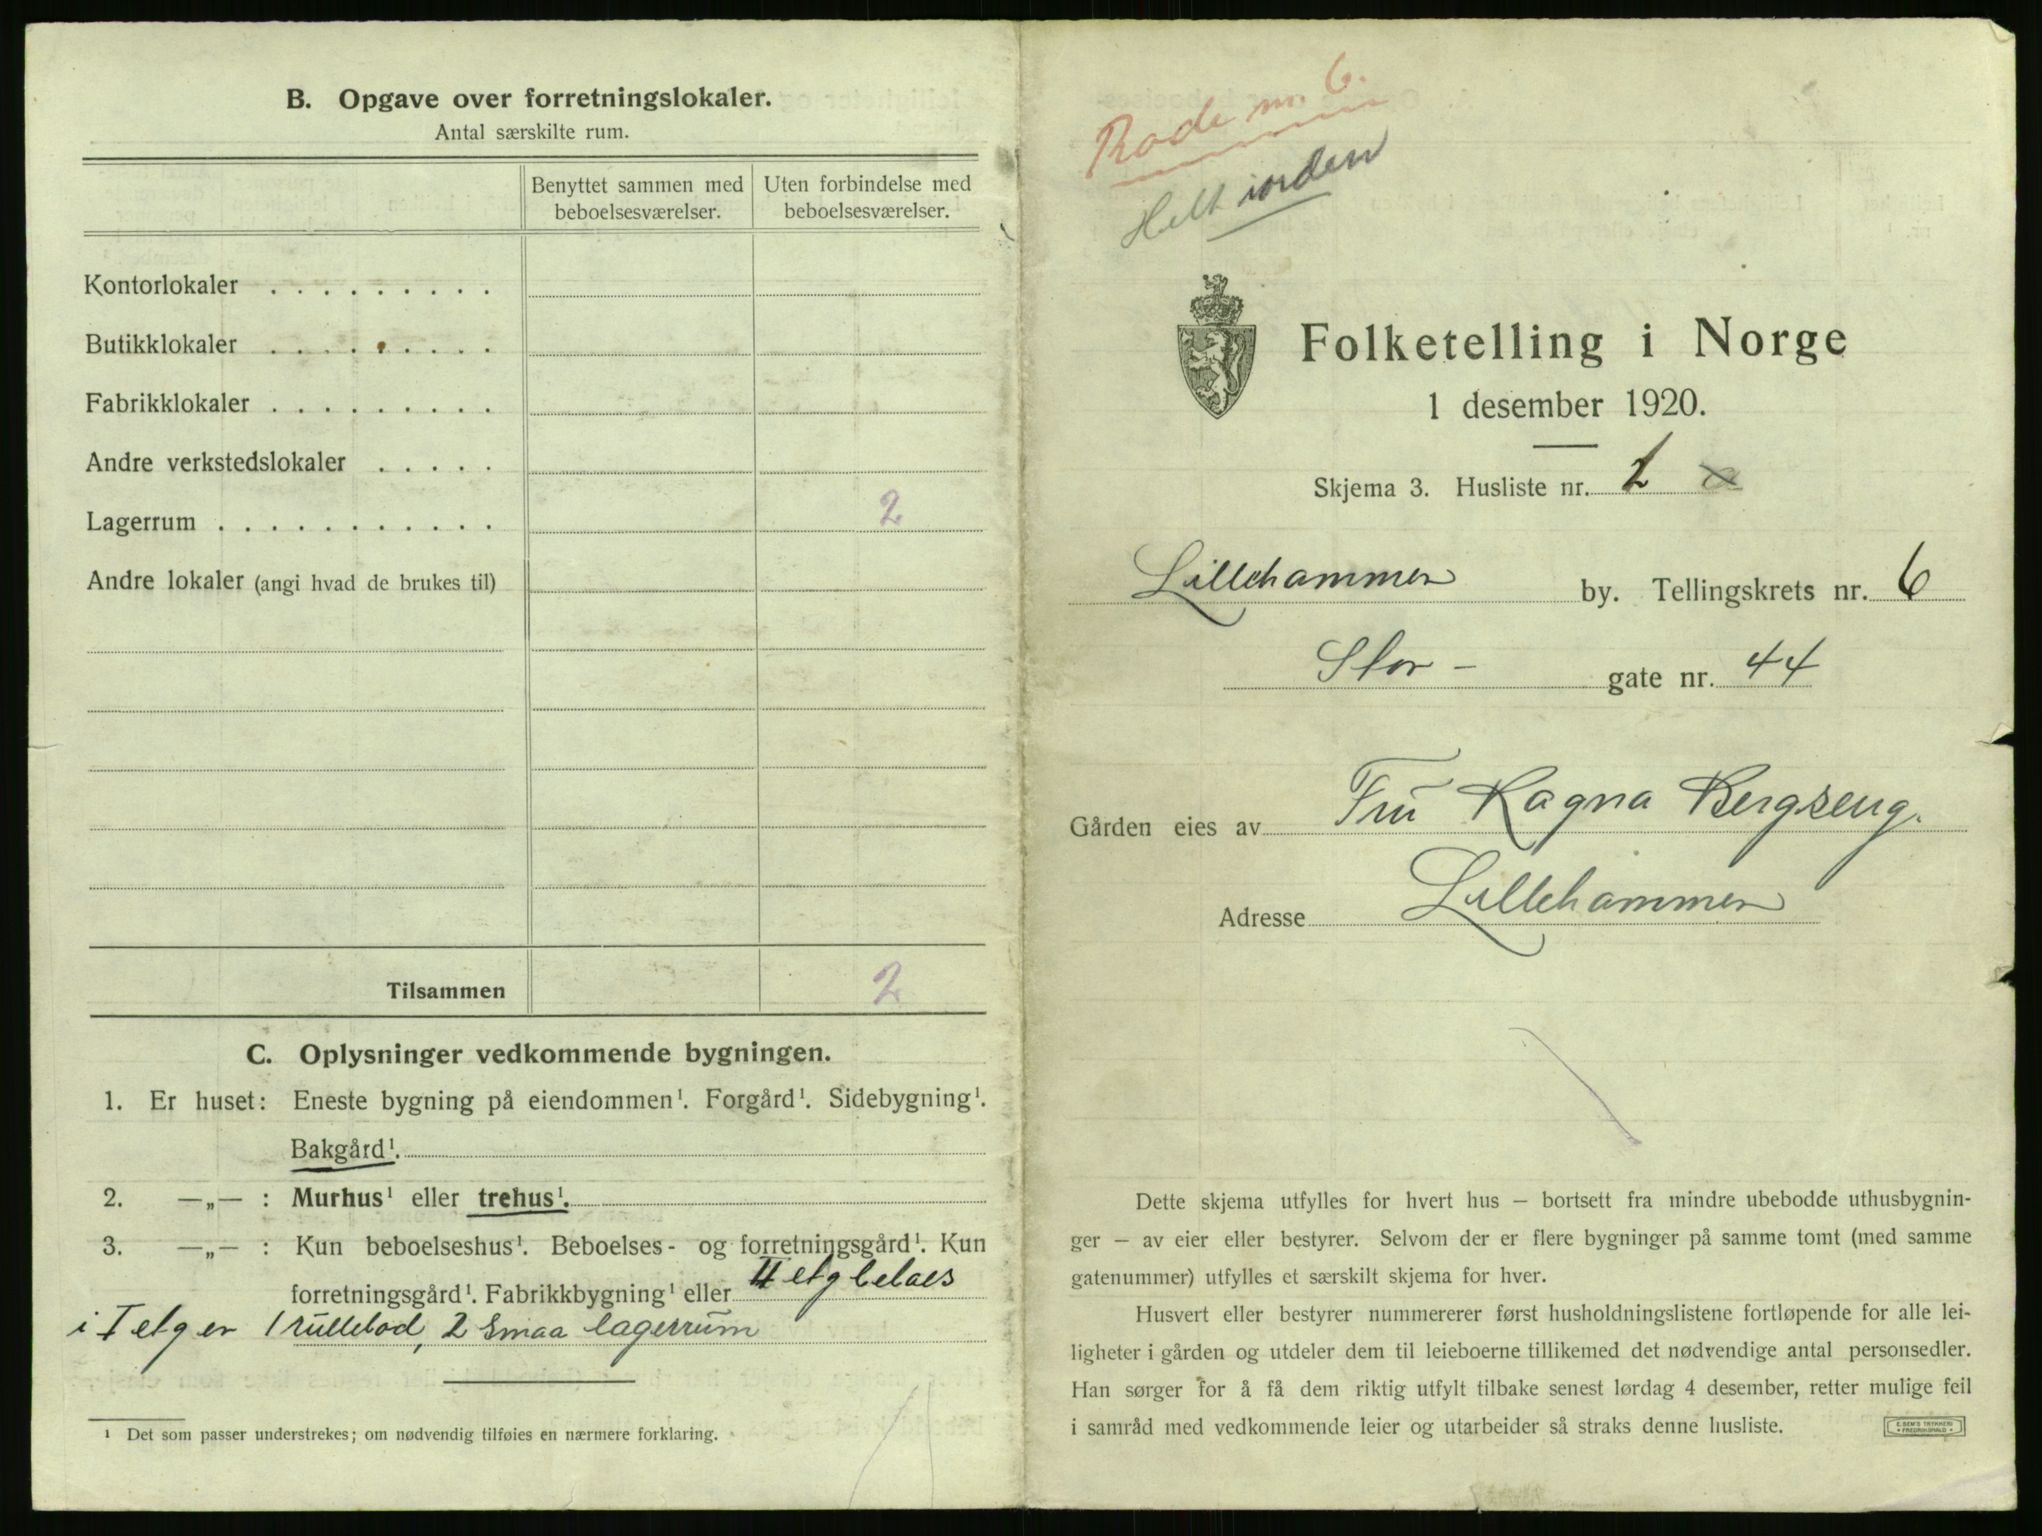 B. Opgave over forretningslokaler.
Antal særskilte rum.
Benyttet sammen med beboelsesværelser.
Uten forbindelse med beboelsesværelser.
Kontorlokaler . . . . . . . . .
Butikklokaler . . . . . . . . .
Fabrikklokaler . . . . . . . . .
Andre verkstedslokaler . . . . .
Lagerrum . . . . . . . . . . . 2
Andre lokaler (angi hvad de brukes til)
Tilsammen 2
C. Oplysninger vedkommende bygningen.
1. Er huset: Eneste bygning på eiendommen¹. Forgård¹. Sidebygning¹.
Bakgård¹.
2. —„— : Murhus¹ eller trehus¹.
3. —„— : Kun beboelseshus¹. Beboelses- og forretningsgård¹. Kun
forretningsgård¹. Fabrikkbygning¹ eller II etg beboes
i I etg er 1 rullebod, 2 smaa lagerrum
¹ Det som passer understrekes; om nødvendig tilføies en nærmere forklaring.
Rode nr. 6.
Helt iorden
Folketelling i Norge
1 desember 1920.
Skjema 3. Husliste nr. 2
Lillehammer by. Tellingskrets nr. 6
Stor- gate nr. 44
Gården eies av Fru Ragna Bergseng.
Adresse Lillehammer
Dette skjema utfylles for hvert hus — bortsett fra mindre ubebodde uthusbygnin-
ger — av eier eller bestyrer. Selvom der er flere bygninger på samme tomt (med samme
gatenummer) utfylles et særskilt skjema for hver.
Husvert eller bestyrer nummererer først husholdningslistene fortløpende for alle lei-
ligheter i gården og utdeler dem til leieboerne tillikemed det nødvendige antal personsedler.
Han sørger for å få dem riktig utfylt tilbake senest lørdag 4 desember, retter mulige feil
i samråd med vedkommende leier og utarbeider så straks denne husliste.
E. SEM'S TRYKKERI
• FREDRIKSHALD •